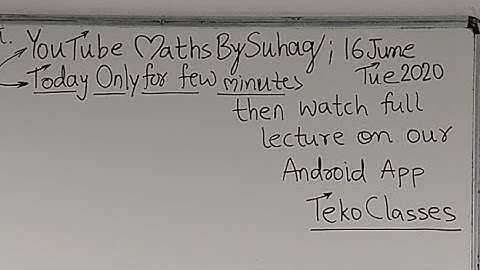 YouTube MathsBySuhag; 16 June
Today Only for few minutes Tue 2020
then watch full
lecture on our
Android App
TekoClasses